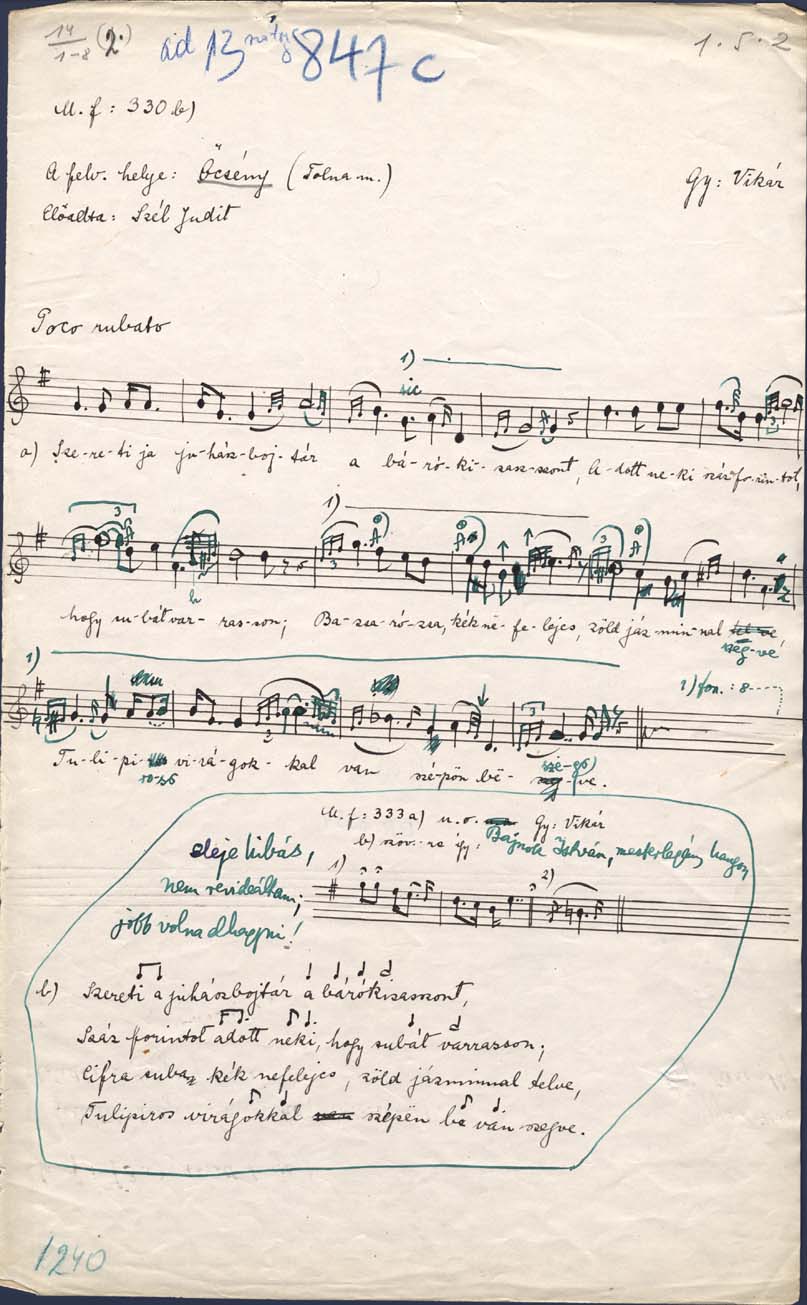 14/1-8 (2.) ad 13 847 c 1.5.2
M. f: 330 b)
A felv. helye: Őcsény (Tolna m.) Gy: Vikár
Előadta: Szél Judit
Poco rubato
1)
sic
a) Sze-re-ti ja ju-hász-boj-tár a bá-ró-ki-sasz-szont, A-dott ne-ki száz fo-rin-tot,
3
1)
hogy su-bát var-ras-son; Ba-zsa-ró-zsa, kék ne-fe-lejcs, zöld jáz-min-nal
szeg-vé,
1)
1) fon.: 8
Tu-li-pi- vi-rá-gok-kal van szé-pön bé- ve.
ro-sö
sze-gö)
M. f: 333 a) u. o. Gy: Vikár
b) szöv.-re így: Bajnok István, mesterlegény hangon
eleje hibás,
nem revideáltam;
jobb volna elhagyni!
1) 2)
b) Szereti a juhászbojtár a bárókisasszont,
Száz forintot adott neki, hogy subát varrasson;
Cifra suba, kék nefelejcs, zöld jázminnal telve,
Tulipiros virágokkal szépën be van szegve.
1240